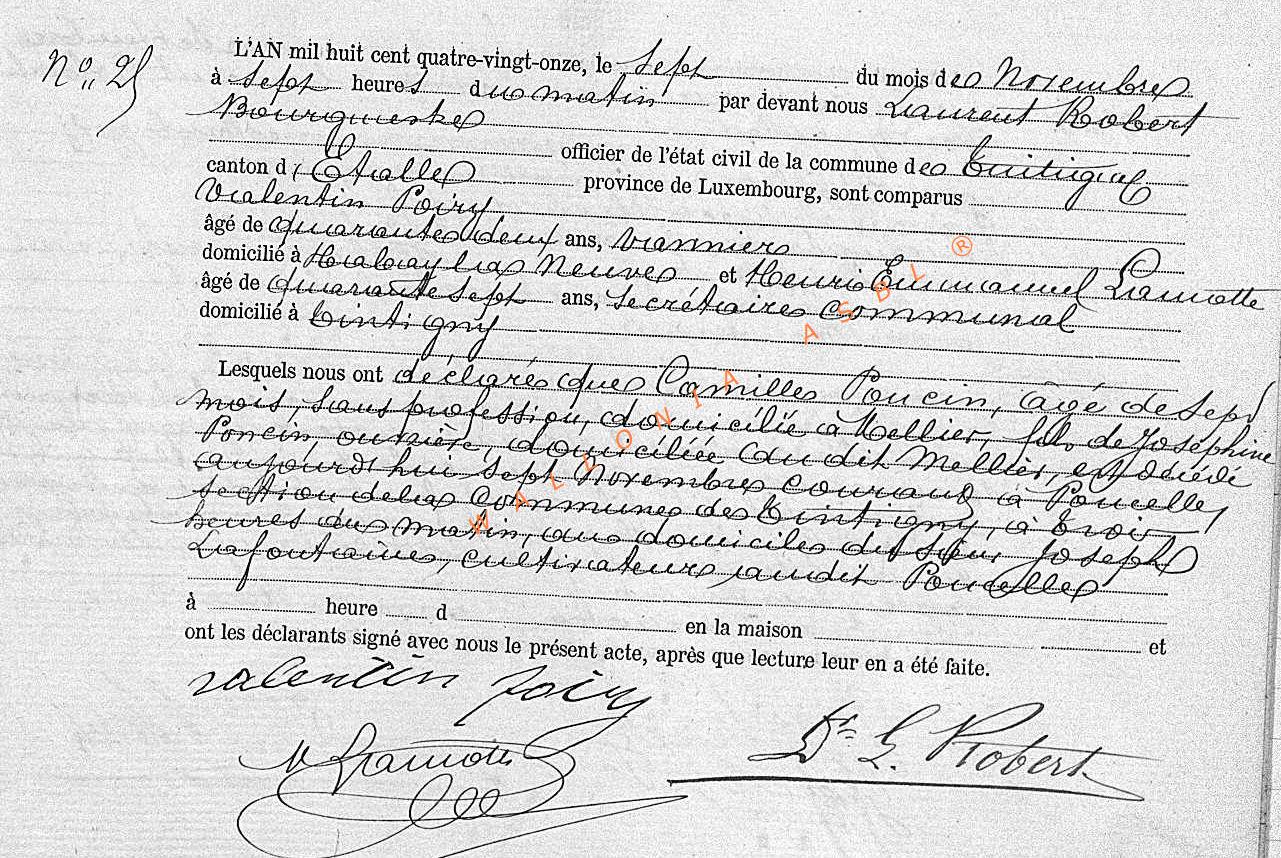 N° 25
L'AN mil huit cent quatre-vingt-onze, le Sept du mois de Novembre
à Sept heures du matin par devant nous Laurent Robert
Bourgmestre
officier de l'état civil de la commune de Tintigny
canton d'Etalle province de Luxembourg, sont comparus
Valentin Poiry
âgé de quarante deux ans, vannier
domicilié à Habay la Neuve et Henri Emmanuel Lamotte
âgé de quarante sept ans, Secrétaire communal
domicilié à Tintigny
Lesquels nous ont déclaré que Camille Poncin, âgé de Sept
mois, sans profession, domicilié à Mellier, fils de Joséphine
Poncin, ouvrière, domiciliée audit Mellier, est décédé
aujourd'hui sept Novembre courant à Poncelle,
section de la commune de Tintigny, à trois
heures du matin, au domicile du Sieur Joseph
Lafontaine, cultivateur audit Poncelle
à heure d en la maison et
ont les déclarants signé avec nous le présent acte, après que lecture leur en a été faite.
valentin poiry
Lamotte
Dr. L. Robert
WALLONIA ASBL ®